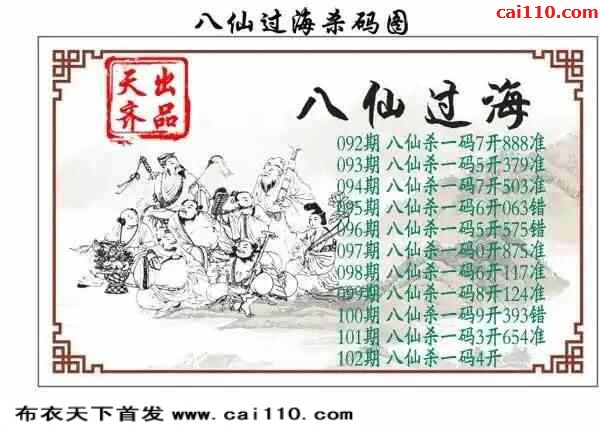 八仙过海杀码图
cai110.com
天齐
出品
八仙过海
092期 八仙杀一码7开888准
093期 八仙杀一码5开379准
094期 八仙杀一码7开503准
095期 八仙杀一码6开063错
096期 八仙杀一码5开575错
097期 八仙杀一码0开875准
098期 八仙杀一码6开117准
099期 八仙杀一码8开124准
100期 八仙杀一码9开393错
101期 八仙杀一码3开654准
102期 八仙杀一码4开
布衣天下首发 www.cai110.com